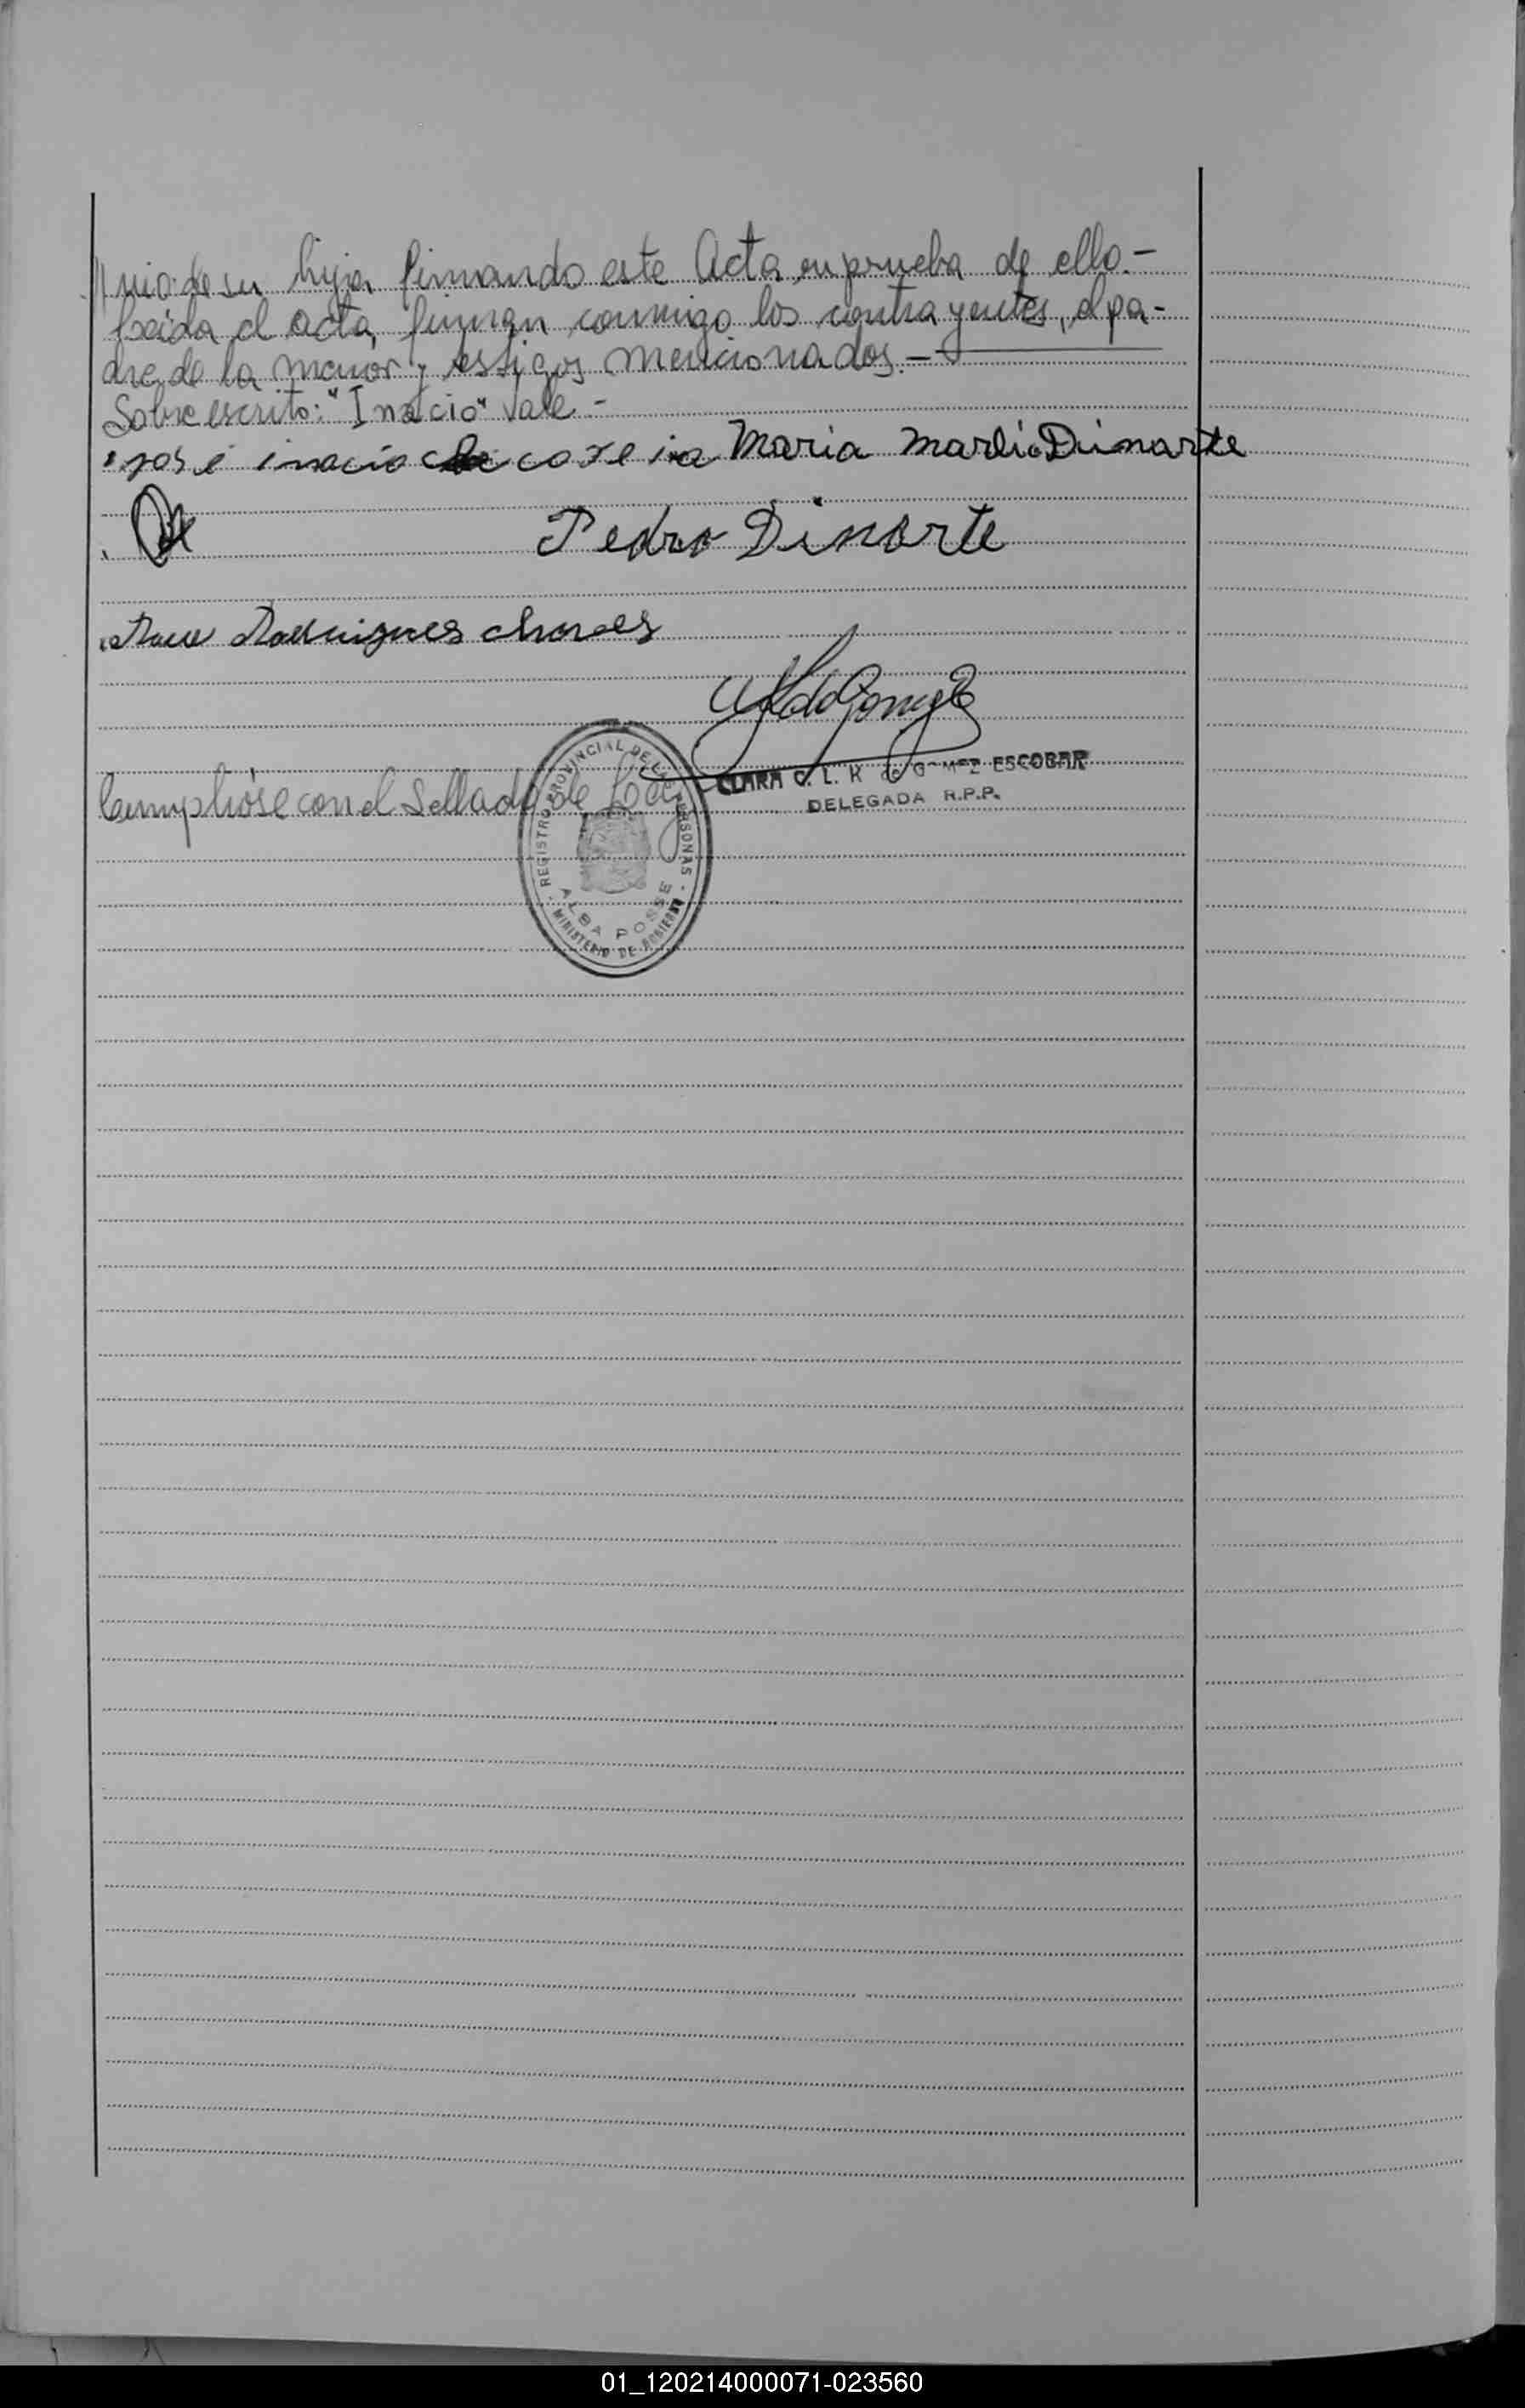 nio de su hija firmando este Acta en prueba de ello.-
Leida el acta, firman conmigo los contrayentes, el pa-
dre de la menor y testigos mencionados.-
Sobre escrito: "Inacio" Vale.-
José inacio coreira Maria Marli Dinarte
Pedro Dinarte
Rodrigues
CLARA C. L. K de GOMEZ ESCOBAR
DELEGADA R.P.P.
Cumplióse con el Sellado de Ley
REGISTRO PROVINCIAL DE LAS PERSONAS
ALBA POSSE
MINISTERIO DE GOBIERNO
01_120214000071-023560